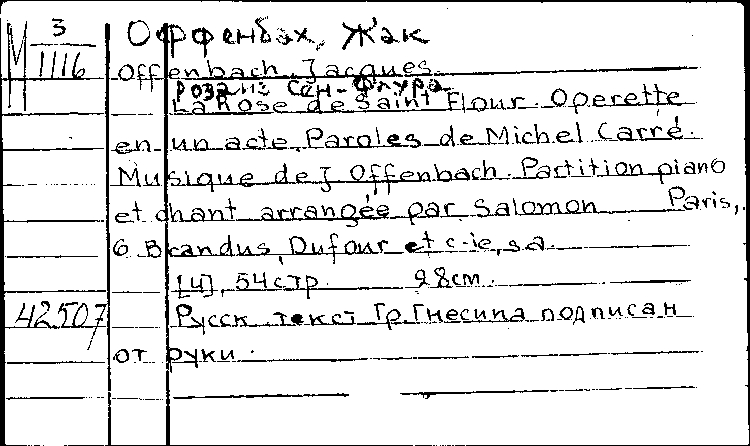 М 3/1116
Оффенбах, Жак
Offenbach, Jacques.
Роза из Сен-Флура.
La Rose de Saint Flour. Operette
en un acte. Paroles de Michel Carré.
Musique de J Offenbach. Partition piano
et chant arrangée par Salomon Paris,
G Brandus, Dufour et c-ie, s.a.
[4], 54 стр. 28 см.
42507 Русск. текст Гр. Гнесина подписан
от руки.